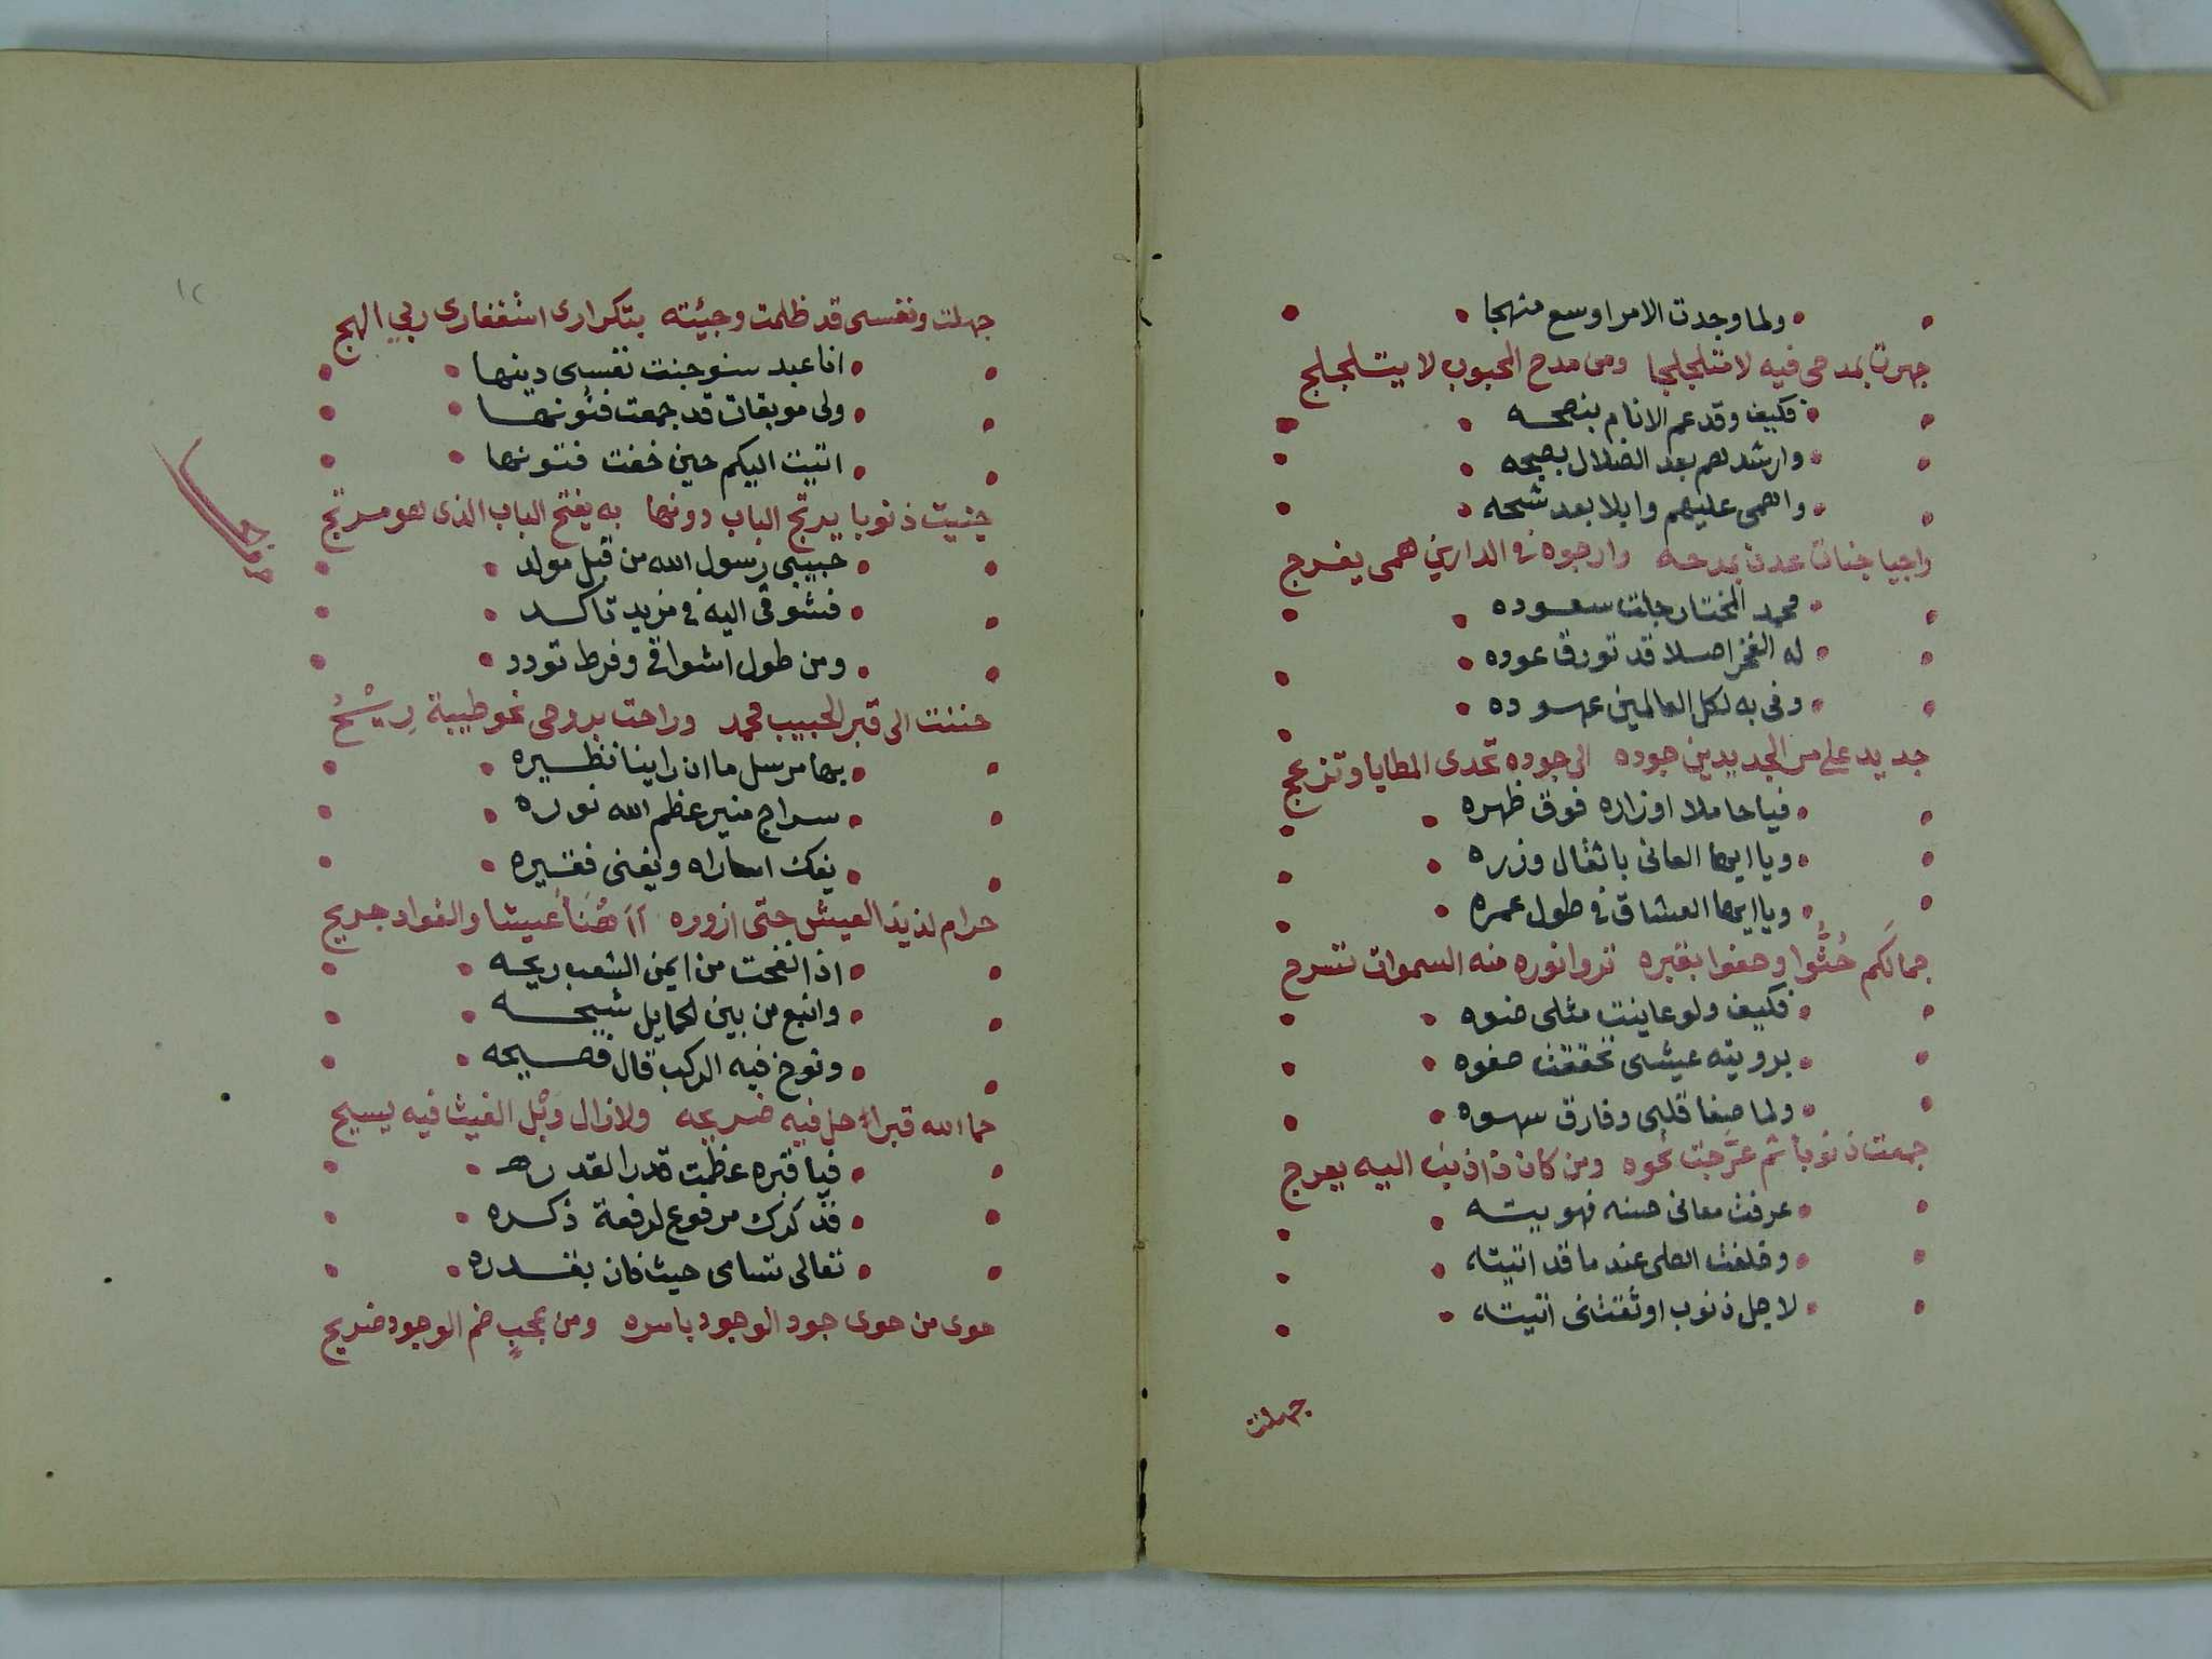 ولما وجدت الامر اوسع منهجا
جهرت بمدحى فيه لا متلجلجا ومن مدح المحبوب لا يتلجلج
فكيف وقد عم الانام بنصحه
وارشدهم بعد الضلال بصبحه
واهمى عليهم وابلا بعد شحه
راجيا جنات عدن بمدحه وارجوه فى الدارين همى يفرج
محمد المختار جلت سعوده
له الفخر اصلا قد تورق عوده
وفى به لكل العالمين عهوده
جديد على مر الجديدين جوده الى جوده تحدى المطايا وتزعج
فيا حاملا اوزاره فوق ظهره
ويا ايها العانى باثقال وزره
ويا ايها العشاق فى طول عمره
جمالكم حُثُّوا وحفوا بقبره تروا نوره منه السموات تسرج
فكيف ولو عاينت مثلى ضوه
برويته عيشى تحققت صفوه
ولما صفا قلبى وفارق سهوه
جمعت ذنوباً ثم عرَّجت نحوه ومن كان ذا ذنب اليه يعرج
عرفت معانى حسنه فهويته
وخلفت اهلى عند ما قد اتيته
لاجل ذنوب اوثقتنى اتيته
جهلت
١٢
جهلت ونفسى قد ظلمت وجيئته بتكرارى اشغفارى ربي الهج
انا عبد سنو جنت نفسى دينها
ولى موبقات قد جمعت فنونها
اتيت اليكم حين خفت فتونها
جنيت ذنوبا يرتج الباب دونها به يفتح الباب الذى هو مرتج
حبيبى رسول الله من قبل مولد
فشوقى اليه فى مزيد تاكد
ومن طول اشواقى وفرط تودد
حننت الى قبر الحبيب محمد وراحت بروحى نحو طيبة رِيْحُ
بها مرسل ما ان راينا نظيره
سراج منير عظم الله نوره
يفك اساراه ويغنى فقيره
حرام لذيذ العيش حتى ازوره عيشا والفواد جريح
اذا نفحت من ايمن الشعب ريحه
وانبع من بين الحمايل شيحه
ونوخ فيه الركب قال فصيحه
حما الله قبراً حل فيه ضريحه ولا زال وَبْل الغيث فيه يسيح
فيا قبره عظمت قدرا لقدره
فذكرك مرفوع لرفعة ذكره
تعالى تسامى حيث فان بقدره
حوى من حوى جود الوجود باسره ومن عجبٍ ضم الوجود ضريح